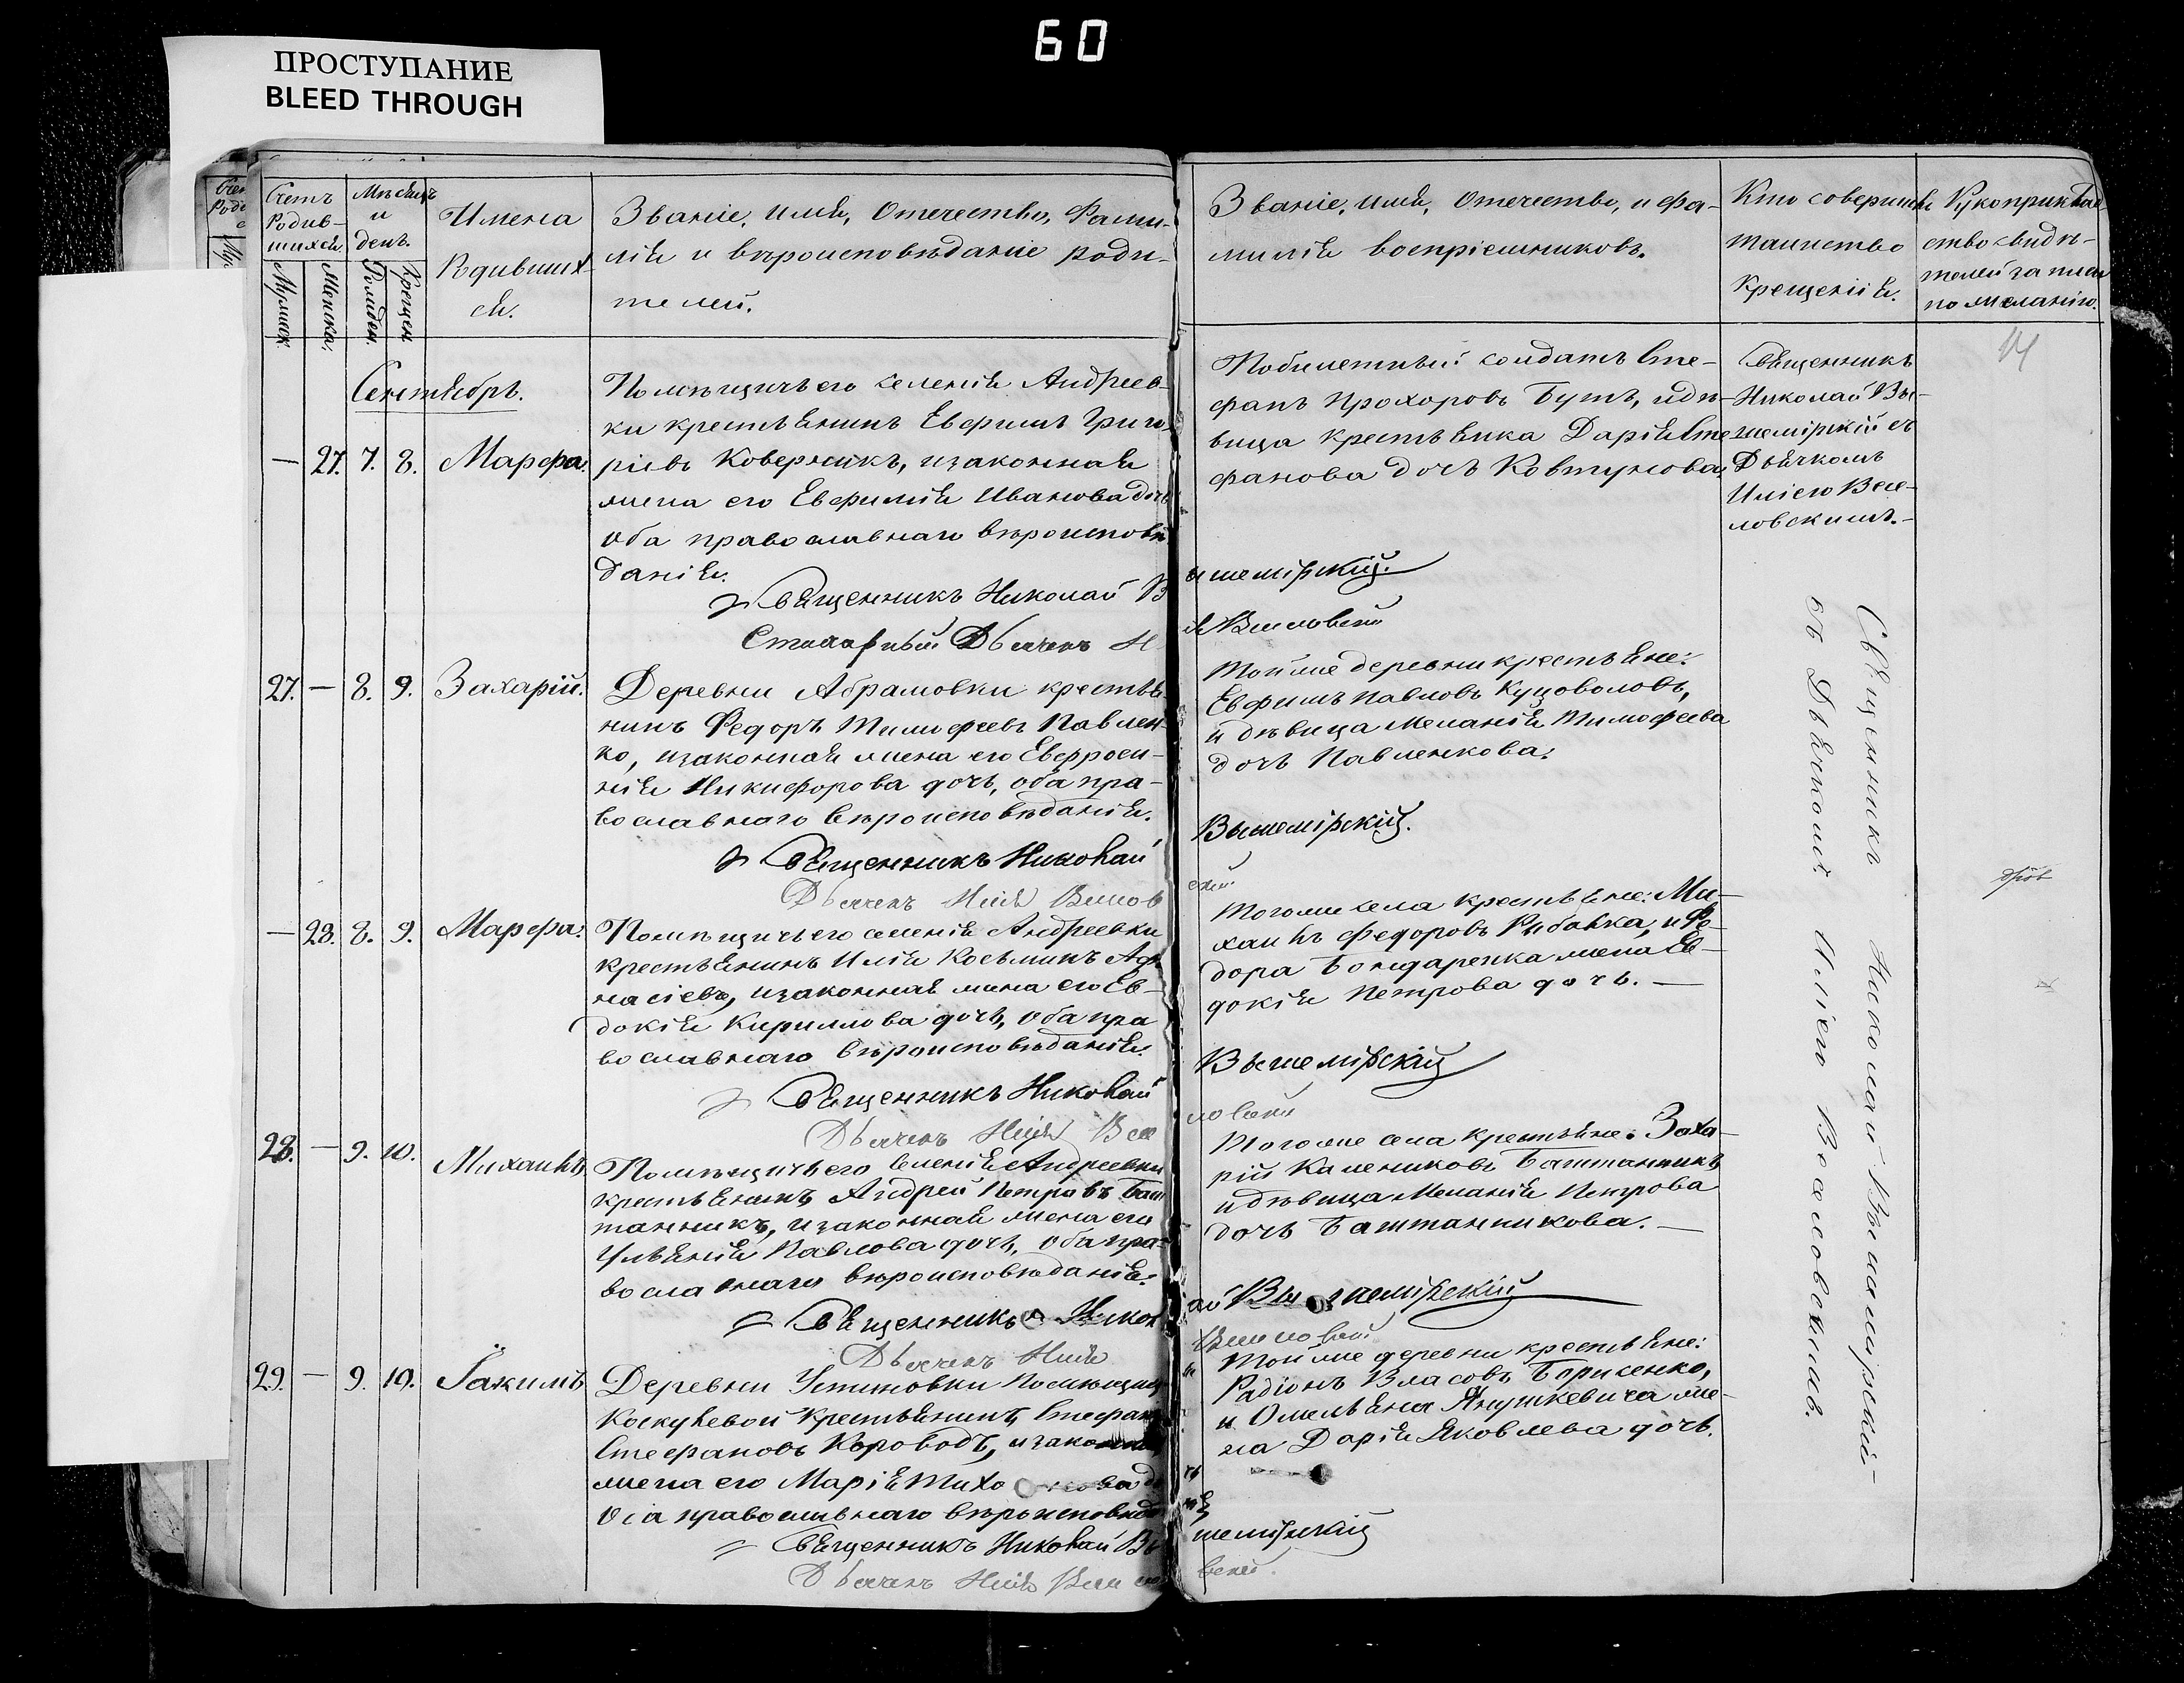 60
ПРОСТУПАНИЕ
BLEED THROUGH
Счетъ
Родив-
шихся
Мужск.
Женска.
Мѣсяцъ
и
день.
Рожден.
Крещен.
Имена
Родивших-
ся.
Званіе, имя, Отечество, Фами-
лія и вѣроисповѣданіе роди-
телей.
Званіе, имя, Отечество, и фа-
милія воспріемниковъ.
Кто совершилъ
таинство
Крещенія.
Рукоприклад
ство свидѣ-
телей записи
по желанію.
Сентябрь.
— 27. 7. 8. Марфа.
Помѣщичьего селенія Андреев-
ки крестьянинъ Евфимъ Григо
ріевъ Коверникъ, изаконная
жена его Евфимія Иванова дочь
оба православнаго вѣроисповѣ
данія.
Священникъ Николай В
ышемірскій.
Стихарный Дьячекъ
Побилетный солдатъ Сте-
фанъ Прохоровъ Бутъ, идѣ-
вица крестьянка Дарія Сте
фанова дочь Ковтунова.
Священникъ
Николай Вы-
шемірскій съ
Дьячкомъ
Иліею Весе-
ловскимъ.-
27. — 8. 9. Захарій.
Деревни Абрамовки крестья
нинъ Федоръ Тимофеевъ Павлен-
ко, изаконная жена его Евфроси-
нія Никифорова дочь, оба пра-
вославнаго вѣроисповѣданія.
Священникъ Николай
Вышемірскій.
Дьячекъ Илія Весилов
ский
Тойже деревни крестьяне:
Евфимъ Павловъ Куцоволовъ,
и дѣвица Меланія Тимофеева
дочь Павленкова.
— 28. 8. 9. Марфа.
Помѣщичьего селенія Андреевки
крестьянинъ Илія Косьминъ Афа
насіевъ, изаконная жена его Ев-
докія Кириллова дочь, оба пра
вославнаго вѣроисповѣданія.
Священникъ Николай
Вышемірскій
Дьячекъ Илія Весе
ловский
Тогоже села крестьяне: Ми-
хаилъ Федоровъ Рибалка, и Фе-
дора Бондаренка жена Ев-
докія Петрова дочь. —
28. — 9. 10. Михаилъ
Помѣщичьего селенія Андреевки
крестьянинъ Андрей Петровъ Баш
танникъ, изаконная жена его
Ульянія Павлова дочь, оба пра-
вославнаго вѣроисповѣданія.
Священникъ Никол
ай Вышемірскій
Дьячекъ Илія
Веселовский
Тогоже села крестьяне: Заха-
рій Калениковъ Баштанникъ
идѣвица Меланія Петрова
дочь Баштанникова. —
29. — 9. 10. Іакимъ
Деревни Устиновки Помѣщицы
крестьянинъ Стефанъ
Стефановъ Короводъ, изаконная
жена его Марія
Оба православнаго вѣроисповѣда
нія
Священникъ Николай Вы
шемірскій
Дьячекъ Илія Весело
вский.
Тойже деревни крестьяне:
Радіонъ Власовъ Борисенко,
и Омельяна Янушкевича же-
на Дарія Яковлева дочь.
Священникъ Николай Вышемірскій-
съ Дьячкомъ Иліею Веселовскимъ.